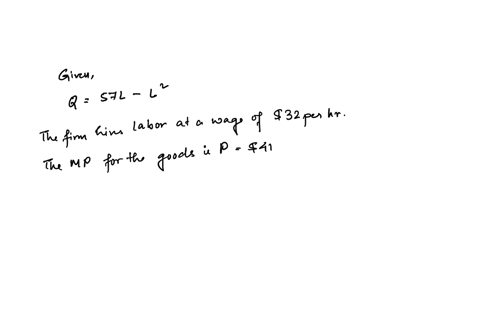 Given,
Q = 57L - L²
The firm hires labor at a wage of $32 per hr.
The MP for the goods is P = $41